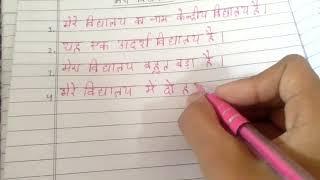 1. मेरे विद्यालय का नाम केन्द्रीय विद्यालय है।
2. यह एक आदर्श विद्यालय है।
3. मेरा विद्यालय बहुत बड़ा है।
4. मेरे विद्यालय में दो ह